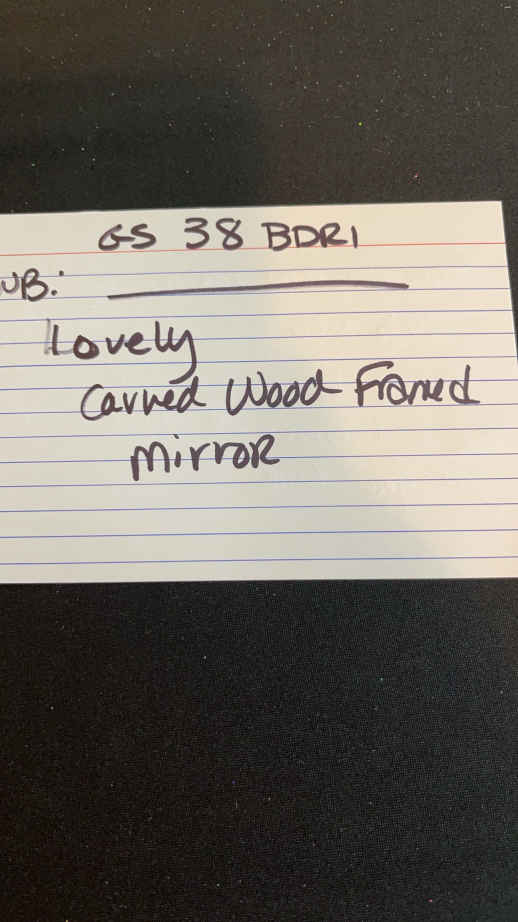 GS 38 BDR1
UB:
Lovely
Carved Wood Framed
Mirror